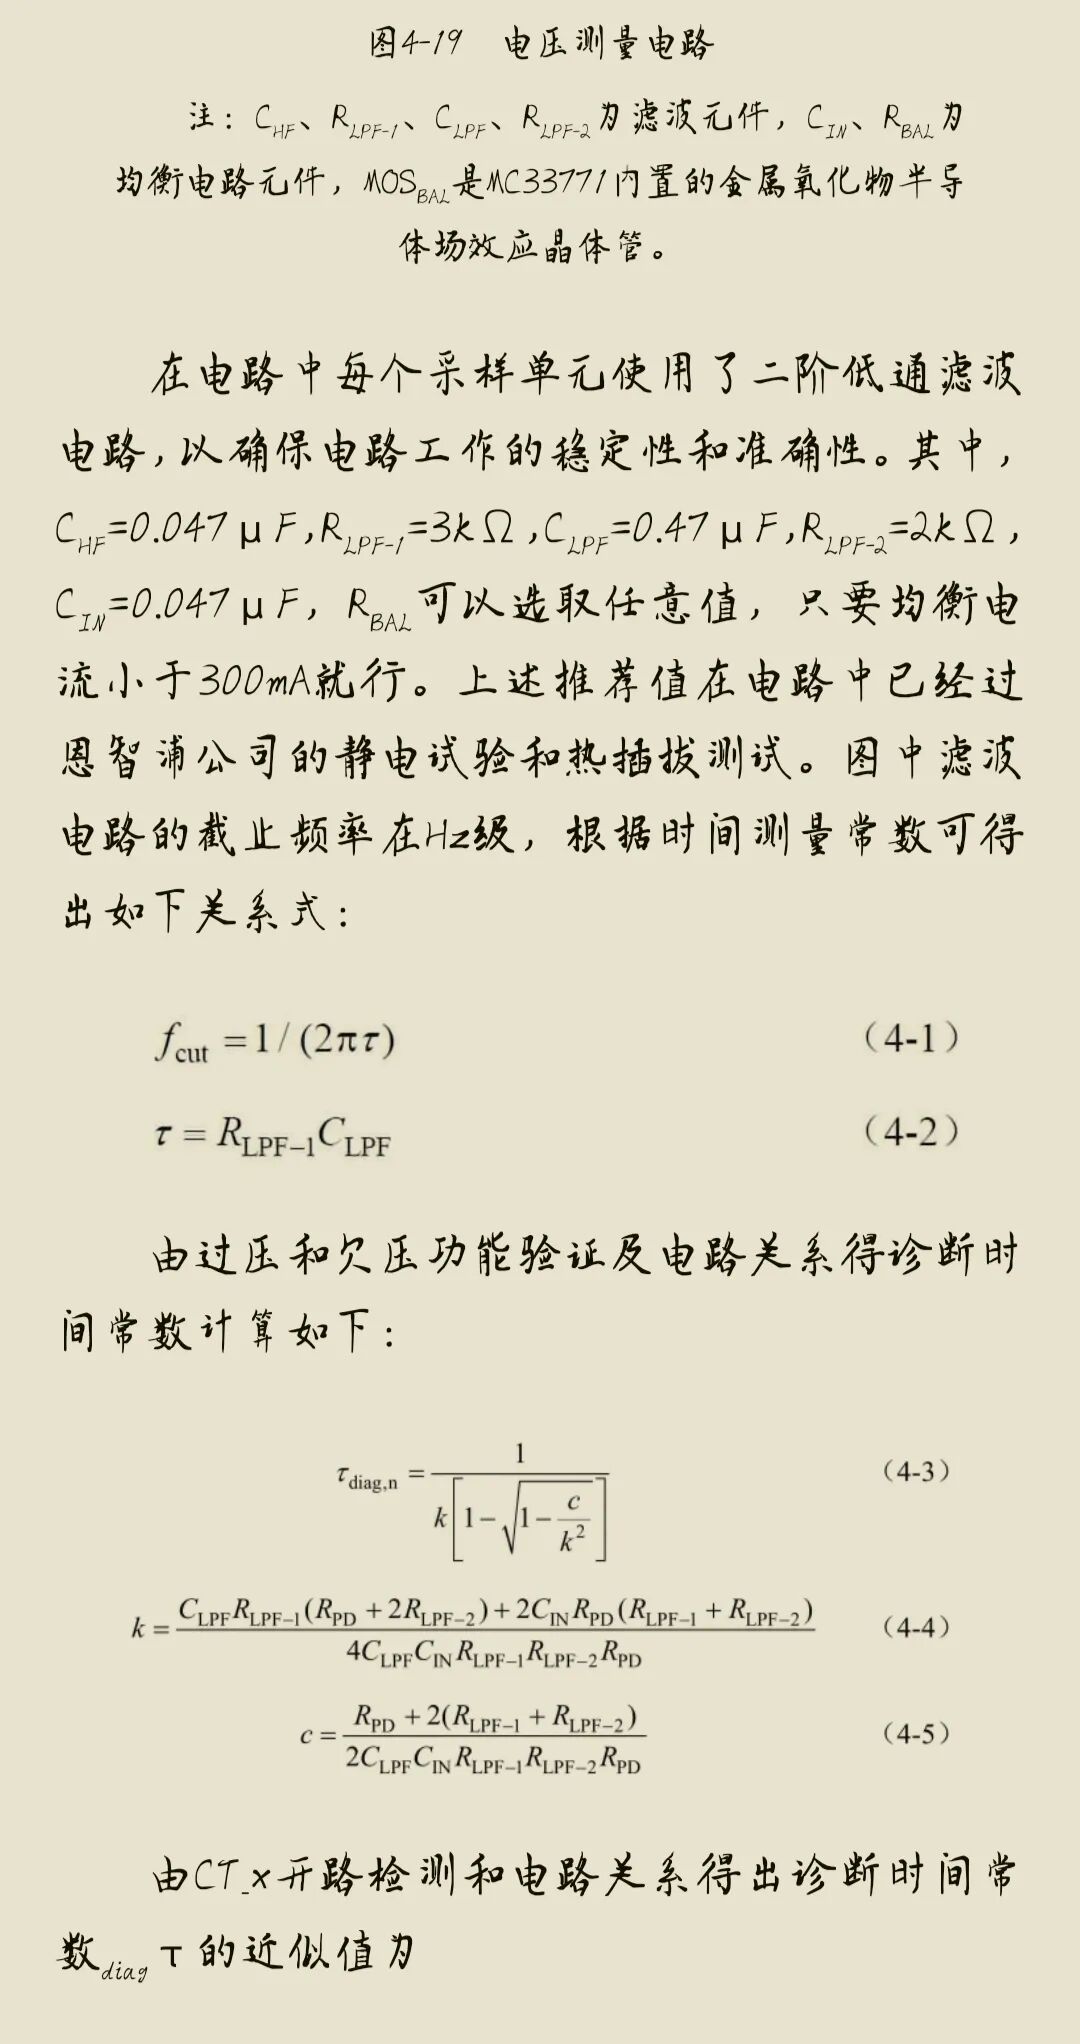 图4-19 电压测量电路
注：C_HF、R_LPF-1、C_LPF、R_LPF-2为滤波元件，C_IN、R_BAL为
均衡电路元件，MOS_BAL是MC33771内置的金属氧化物半导
体场效应晶体管。
在电路中每个采样单元使用了二阶低通滤波
电路,以确保电路工作的稳定性和准确性。其中，
C_HF=0.047μF,R_LPF-1=3kΩ,C_LPF=0.47μF,R_LPF-2=2kΩ,
C_IN=0.047μF，R_BAL可以选取任意值，只要均衡电
流小于300mA就行。上述推荐值在电路中已经过
恩智浦公司的静电试验和热插拔测试。图中滤波
电路的截止频率在Hz级，根据时间测量常数可得
出如下关系式：
f_cut = 1/(2πτ) （4-1）
τ = R_LPF−1 C_LPF （4-2）
由过压和欠压功能验证及电路关系得诊断时
间常数计算如下：
τ_diag,n = 1 / (k[1−√(1−c/k²)]) （4-3）
k = (C_LPF R_LPF−1 (R_PD + 2R_LPF−2) + 2C_IN R_PD (R_LPF−1 + R_LPF−2)) / (4C_LPF C_IN R_LPF−1 R_LPF−2 R_PD) （4-4）
c = (R_PD + 2(R_LPF−1 + R_LPF−2)) / (2C_LPF C_IN R_LPF−1 R_LPF−2 R_PD) （4-5）
由CT_x开路检测和电路关系得出诊断时间常
数_diag τ的近似值为